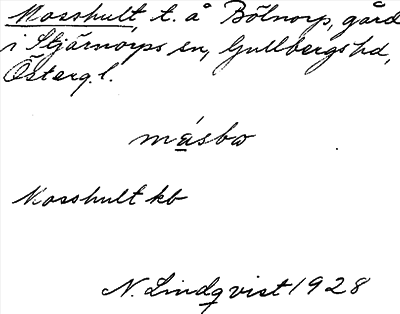 Mosshult, t. å Bölnorp, gård
i Stjärnorps sn, Gullbergs hd,
Österg. l.
másbo
Mosshult kb
N. Lindqvist 1928